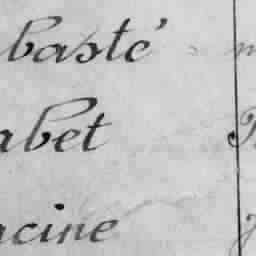 basté
abet
acine